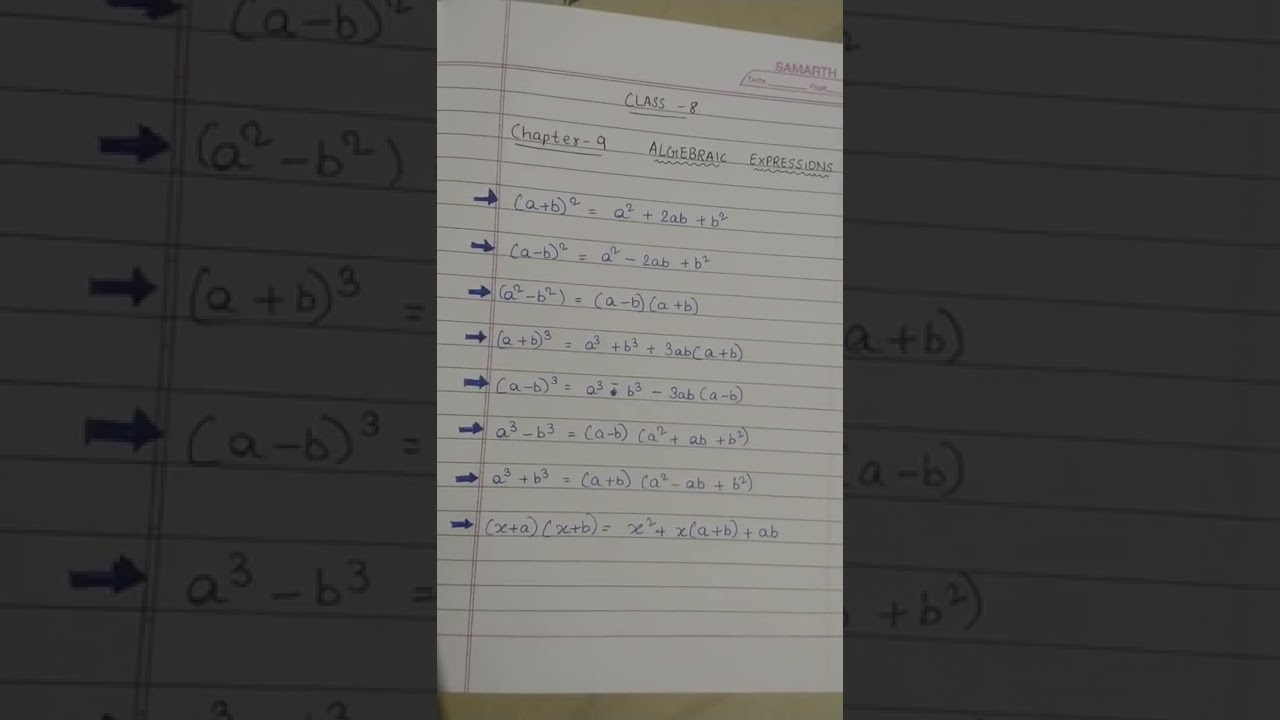 SAMARTH
Date Page
CLASS - 8
Chapter - 9 ALGEBRAIC EXPRESSIONS
(a+b)² = a² + 2ab + b²
(a-b)² = a² - 2ab + b²
(a² - b²) = (a-b) (a+b)
(a+b)³ = a³ + b³ + 3ab(a+b)
(a-b)³ = a³ - b³ - 3ab (a-b)
a³ - b³ = (a-b) (a² + ab + b²)
a³ + b³ = (a+b) (a² - ab + b²)
(x+a) (x+b) = x² + x(a+b) + ab